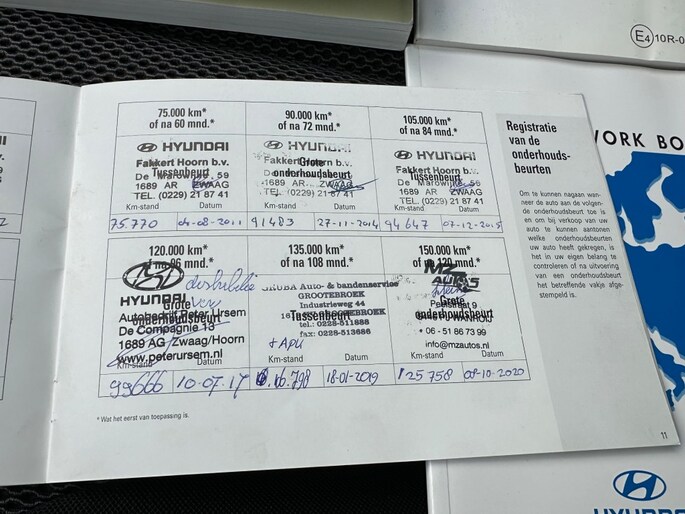 E4 10R-0
WORK BO
75.000 km*
of na 60 mnd.*
HYUNDAI
Fakkert Hoorn b.v.
Tussenbeurt
De Marowijne 59
1689 AR ZWAAG
TEL. (0229) 21 87 41
Km-stand Datum
75.770 04-08-2011
90.000 km*
of na 72 mnd.*
HYUNDAI
Fakkert Hoorn b.v.
Grote
onderhoudsbeurt
1689 AR ZWAAG
TEL. (0229) 21 87 41
Km-stand Datum
91483 27-11-2014
105.000 km*
of na 84 mnd.*
HYUNDAI
Fakkert Hoorn b.v.
Tussenbeurt
De Marowijne 56
1689 AR ZWAAG
TEL. (0229) 21 87 41
Km-stand Datum
94647 07-12-2015
120.000 km*
of na 96 mnd.*
HYUNDAI
Grote
Autobedrijf Peter Ursem
onderhoudsbeurt
De Compagnie 13
1689 AG Zwaag/Hoorn
www.peterursem.nl
Km-stand Datum
99666 10-07-17
135.000 km*
of na 108 mnd.*
SKUBA Auto- & bandenservice
GROOTEBROEK
Industrieweg 44
GROOTEBROEK
Tussenbeurt
tel. 0228-511888
fax: 0228-513686
+ APK
Km-stand Datum
18-01-2019
150.000 km*
of na 120 mnd.*
MZ
AUTO'S
Grote
onderhoudsbeurt
WANROIJ
• 06 - 51 86 73 99
info@mzautos.nl
Km-stand Datum
125758 08-10-2020
* Wat het eerst van toepassing is.
Registratie
van de
onderhouds-
beurten
Om te kunnen nagaan wan-
neer de auto aan de volgen-
de onderhoudsbeurt toe is
en om bij verkoop van uw
auto te kunnen aantonen
welke onderhoudsbeurten
uw auto heeft gekregen, is
het in uw eigen belang te
controleren of na uitvoering
van een onderhoudsbeurt
het betreffende vakje afge-
stempeld is.
11
HYUNDAI